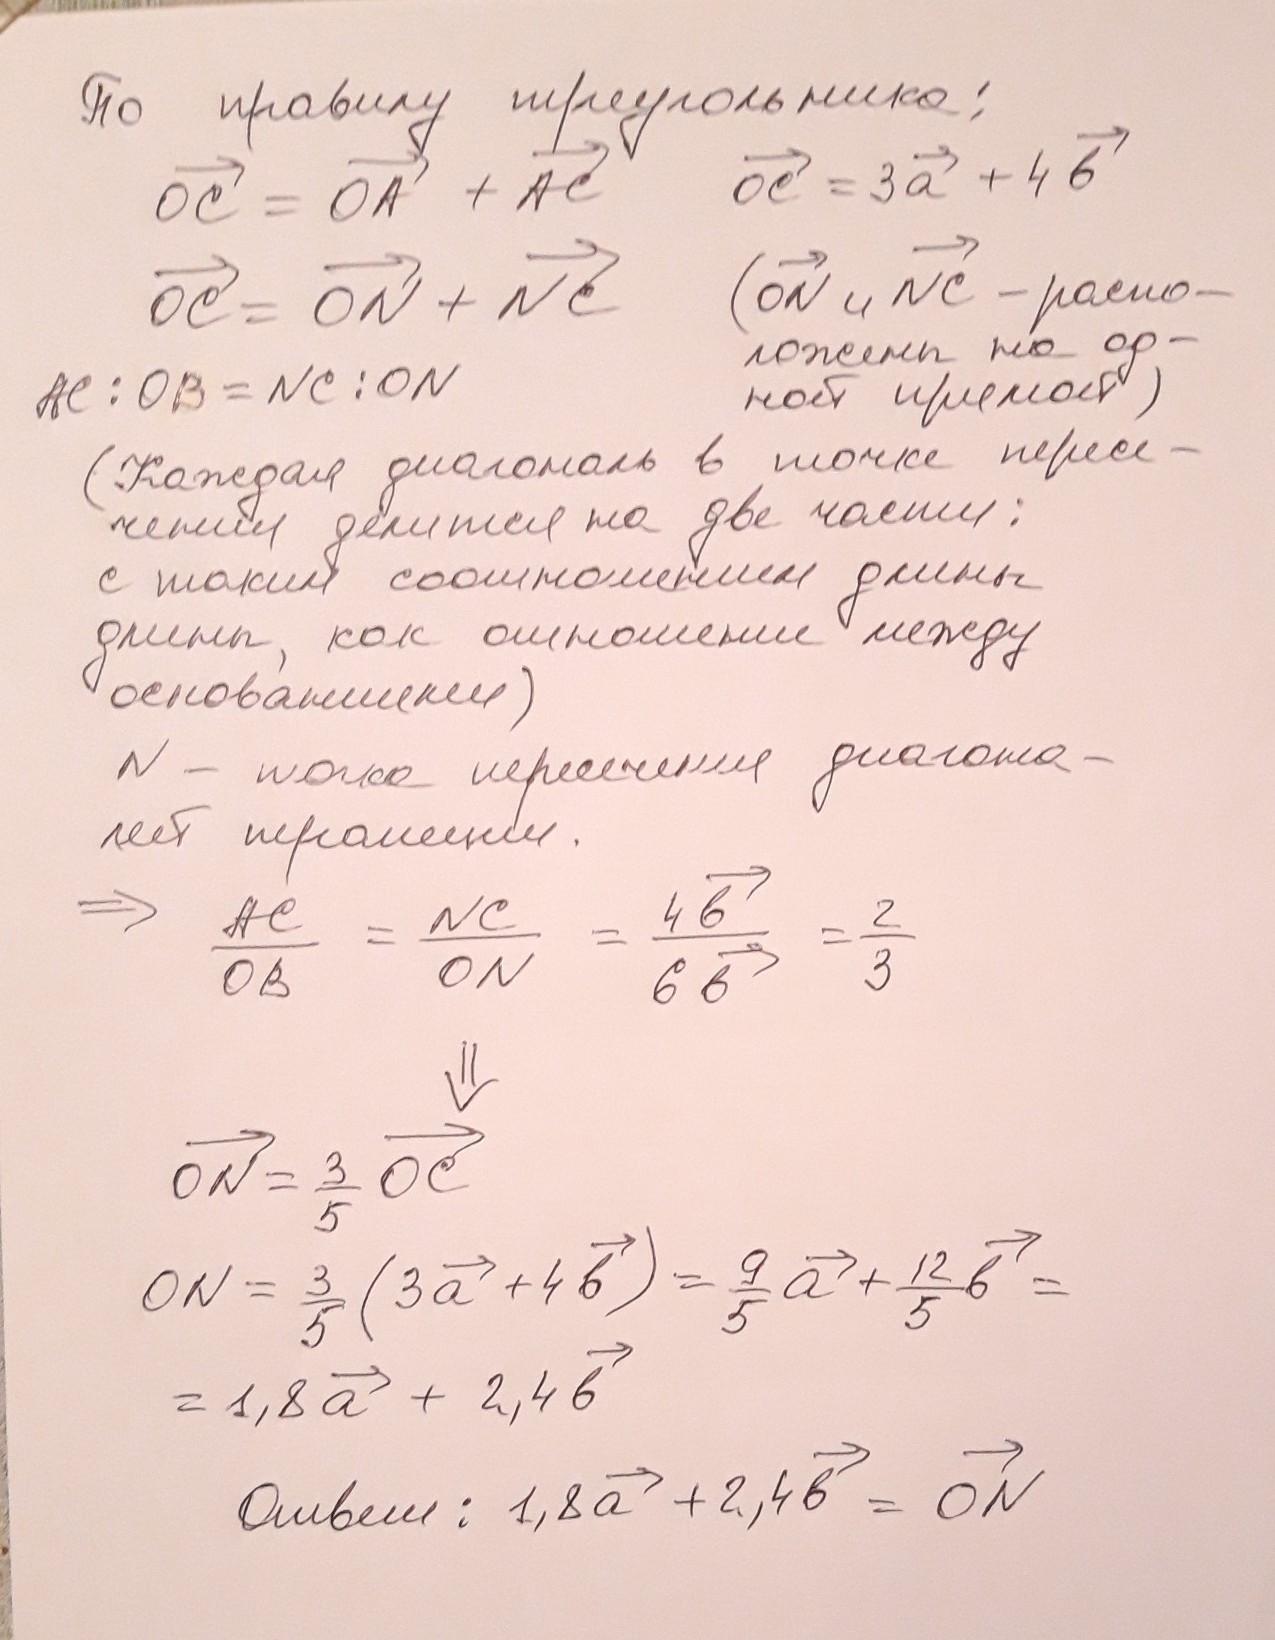 По правилу треугольника:
OC = OA + AC   OC = 3a + 4b
OC = ON + NC   (ON и NC – распо-
ложены на од-
AC : OB = NC : ON   ной прямой)
(Каждая диагональ в точке пересе-
чения делится на две части:
с таким соотношением длины
длины, как отношение между
основаниями)
N – точка пересечения диагона-
лей трапеции.
⇒ AC/OB = NC/ON = 4b/6b = 2/3
⇓
ON = 3/5 OC
ON = 3/5 (3a + 4b) = 9/5 a + 12/5 b =
= 1,8a + 2,4b
Ответ: 1,8a + 2,4b = ON